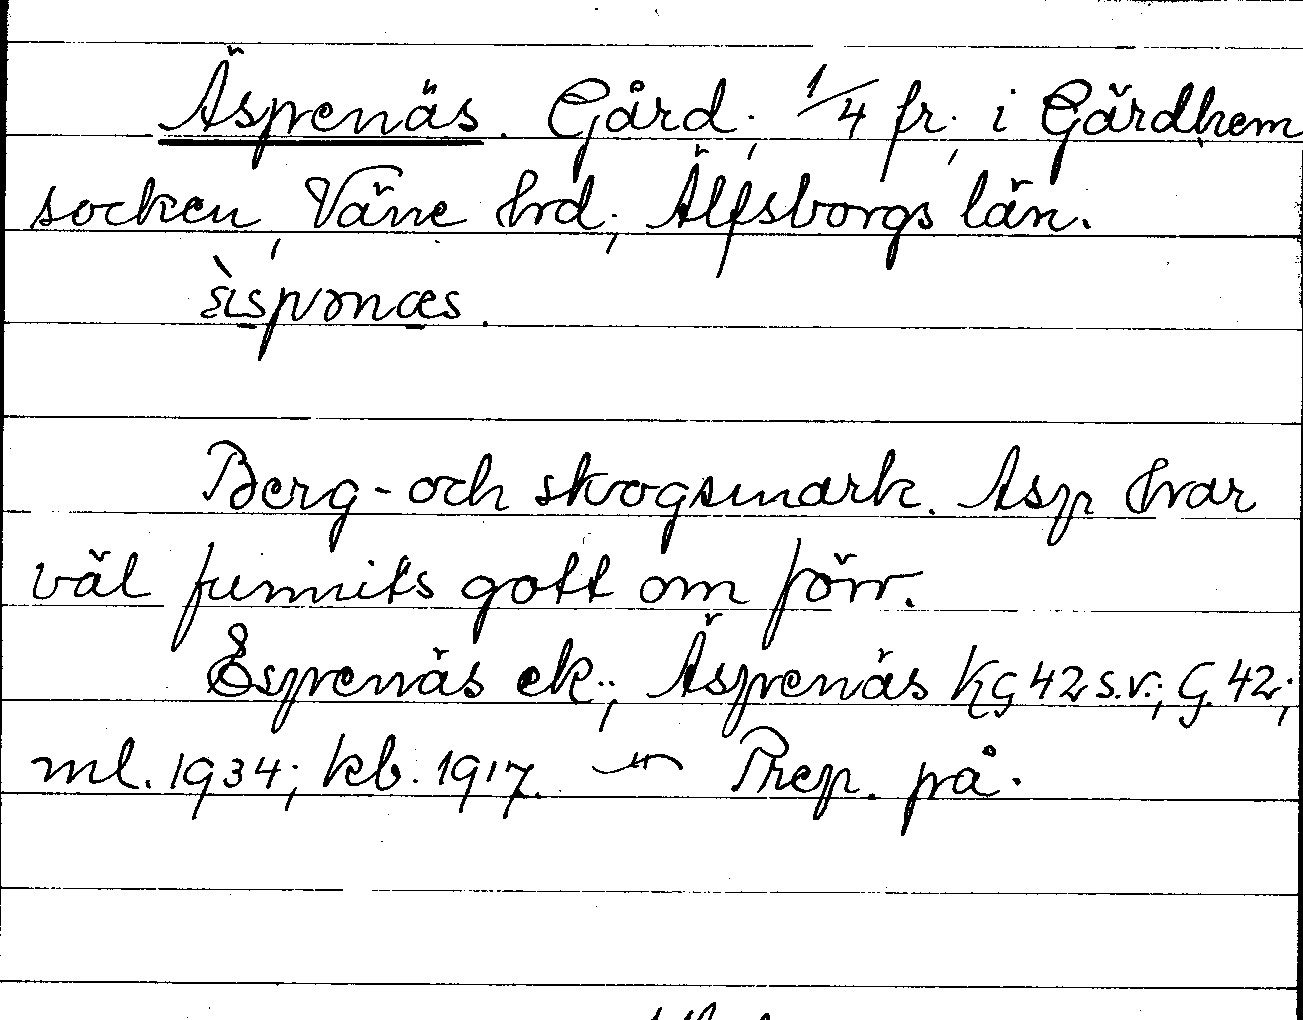 Äspenäs. Gård, 1/4 fr. i Gärdhem
socken, Väne hrd, Älfsborgs län.
Berg- och skogsmark. Asp har
väl funnits gott om förr.
Espenäs ek.; Äspenäs KG 42 s.v.; G. 42;
ml. 1934; kb. 1917. — Prep. på.